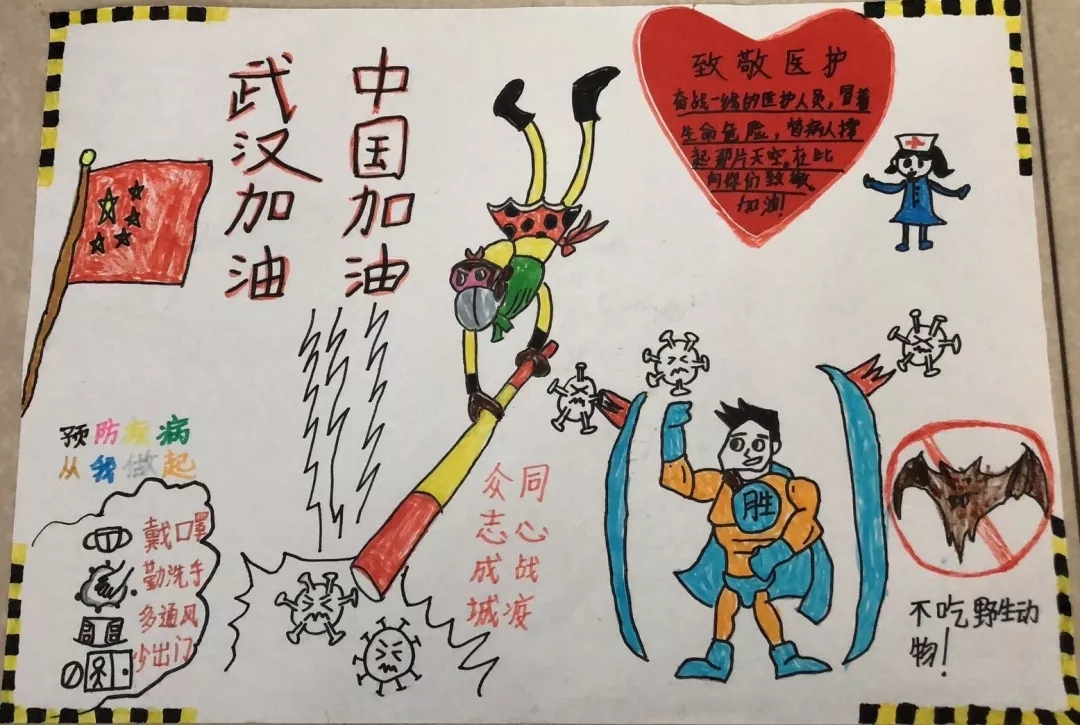 武汉加油
中国加油
致敬医护
奋战一线的医护人员,冒着
生命危险,替病人撑
起那片天空。在此
向你们致敬。
加油!
预防疾病
从我做起
戴口罩
勤洗手
多通风
少出门
众志成城
同心战疫
胜
不吃野生动
物!